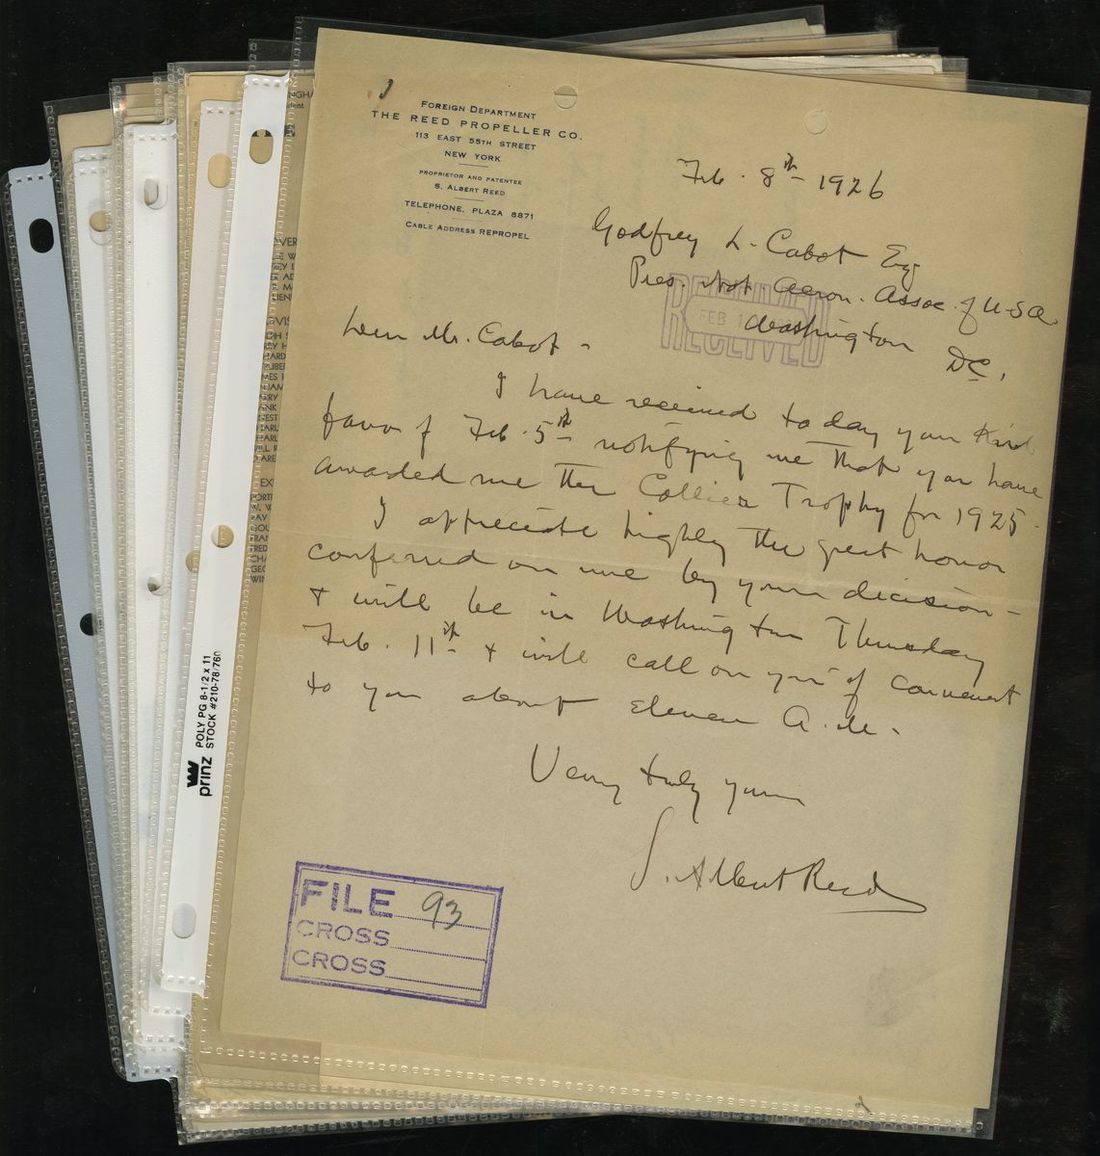 FOREIGN DEPARTMENT
THE REED PROPELLER CO.
113 EAST 55TH STREET
NEW YORK
PROPRIETOR AND PATENTEE
S. ALBERT REED
TELEPHONE, PLAZA 6871
CABLE ADDRESS REPROPEL
Feb. 8th - 1926
Godfrey L. Cabot Esq
Pres. Nat Aeron. Assoc. of U.S.A.
Washington DC,
RECEIVED
FEB 1
Dear Mr. Cabot -
I have received today your kind
favor of Feb. 5th notifying me that you have
awarded me the Collier Trophy for 1925.
I appreciate highly the great honor
conferred on me by your decision -
+ will be in Washington Thursday
Feb. 11th + will call on you if convenient
to you about Eleven A.M.
Very truly yours
S. Albert Reed
FILE 93
CROSS
CROSS
prinz
POLY PG 8-1/2 x 11
STOCK #210-78/760